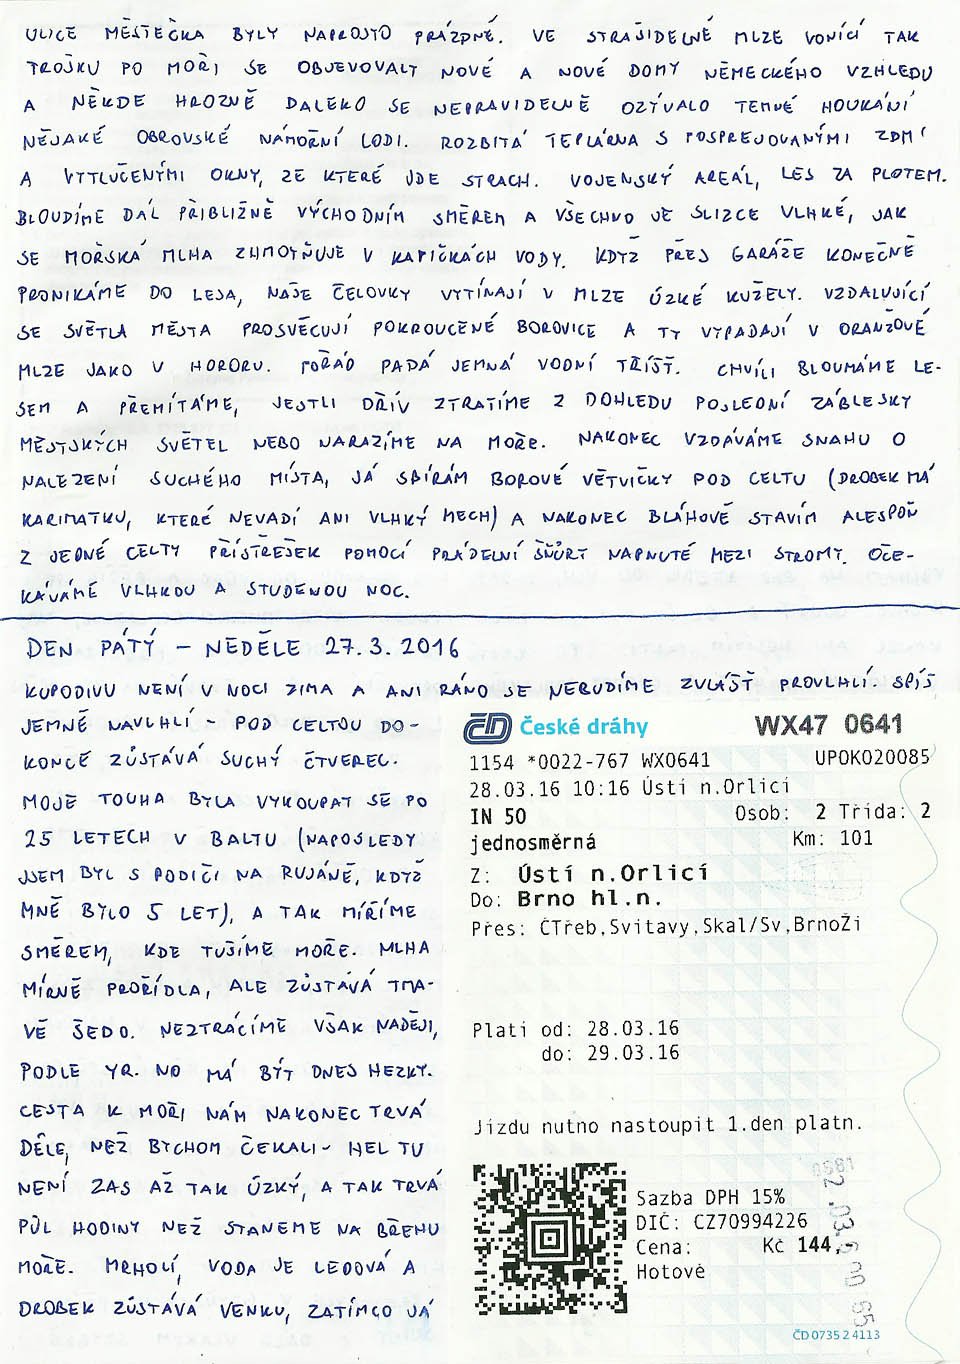 ULICE MĚSTEČKA BYLY NAPROSTO PRÁZDNÉ. VE STRAŠIDELNÉ MLZE VONÍCÍ TAK
TROŠKU PO MOŘI SE OBJEVOVALY NOVÉ A NOVÉ DOMY NĚMECKÉHO VZHLEDU
A NĚKDE HROZNĚ DALEKO SE NEPRAVIDELNĚ OZÝVALO TEMNÉ HOUKÁNÍ
NĚJAKÉ OBROVSKÉ NÁMOŘNÍ LODI. ROZBITÁ TEPLÁRNA S POSPREJOVANÝMI ZDMI
A VYTLUČENÝMI OKNY, ZE KTERÉ JDE STRACH. VOJENSKÝ AREÁL, LES ZA PLOTEM.
BLOUDÍME DÁL PŘIBLIŽNĚ VÝCHODNÍM SMĚREM A VŠECHNO JE SLIZCE VLHKÉ, JAK
SE MOŘSKÁ MLHA ZHMOTŇUJE V KAPIČKÁCH VODY. KDYŽ PŘES GARÁŽE KONEČNĚ
PRONIKÁME DO LESA, NAŠE ČELOVKY VYTÍNAJÍ V MLZE ÚZKÉ KUŽELY. VZDALUJÍCÍ
SE SVĚTLA MĚSTA PROSVĚCUJÍ POKROUCENÉ BOROVICE A TY VYPADAJÍ V ORANŽOVÉ
MLZE JAKO V HORORU. POŘÁD PADÁ JEMNÁ VODNÍ TŘÍŠŤ. CHVÍLI BLOUMÁME LE-
SEM A PŘEMÍTÁME, JESTLI DŘÍV ZTRATÍME Z DOHLEDU POSLEDNÍ ZÁBLESKY
MĚSTSKÝCH SVĚTEL NEBO NARAZÍME NA MOŘE. NAKONEC VZDÁVÁME SNAHU O
NALEZENÍ SUCHÉHO MÍSTA, JÁ SBÍRÁM BOROVÉ VĚTVIČKY POD CELTU (DROBEK MÁ
KARIMATKU, KTERÉ NEVADÍ ANI VLHKÝ MECH) A NAKONEC BLÁHOVĚ STAVÍM ALESPOŇ
Z JEDNÉ CELTY PŘÍSTŘEŠEK POMOCÍ PRÁDELNÍ ŠŇŮRY NAPNUTÉ MEZI STROMY. OČE-
KÁVÁME VLHKOU A STUDENOU NOC.
DEN PÁTÝ – NEDĚLE 27.3.2016
KUPODIVU NENÍ V NOCI ZIMA A ANI RÁNO SE NEBUDÍME ZVLÁŠŤ PROVLHLÍ. SPÍŠ
JEMNĚ NAVLHLÍ – POD CELTOU DO-
KONCE ZŮSTÁVÁ SUCHÝ ČTVEREC.
MOJE TOUHA BYLA VYKOUPAT SE PO
25 LETECH V BALTU (NAPOSLEDY
JSEM BYL S RODIČI NA RUJÁNĚ, KDYŽ
MNĚ BYLO 5 LET), A TAK MÍŘÍME
SMĚREM, KDE TUŠÍME MOŘE. MLHA
MÍRNĚ PROŘÍDLA, ALE ZŮSTÁVÁ TMA-
VĚ ŠEDO. NEZTRÁCÍME VŠAK NADĚJI,
PODLE YR.NO MÁ BÝT DNES HEZKY.
CESTA K MOŘI NÁM NAKONEC TRVÁ
DÉLE, NEŽ BYCHOM ČEKALI – HEL TU
NENÍ ZAS AŽ TAK ÚZKÝ, A TAK TRVÁ
PŮL HODINY NEŽ STANEME NA BŘEHU
MOŘE. MRHOLÍ, VODA JE LEDOVÁ A
DROBEK ZŮSTÁVÁ VENKU, ZATÍMCO JÁ
ČD České dráhy WX47 0641
1154 *0022-767 WX0641 UPOK020085
28.03.16 10:16 Ústí n.Orlicí
IN 50 Osob: 2 Třída: 2
jednosměrná Km: 101
Z: Ústí n.Orlicí
Do: Brno hl.n.
Přes: ČTřeb,Svitavy,Skal/Sv,BrnoŽi
Platí od: 28.03.16
do: 29.03.16
Jízdu nutno nastoupit 1.den platn.
Sazba DPH 15%
DIČ: CZ70994226
Cena: Kč 144,
Hotově
ČD 0735 2 4113